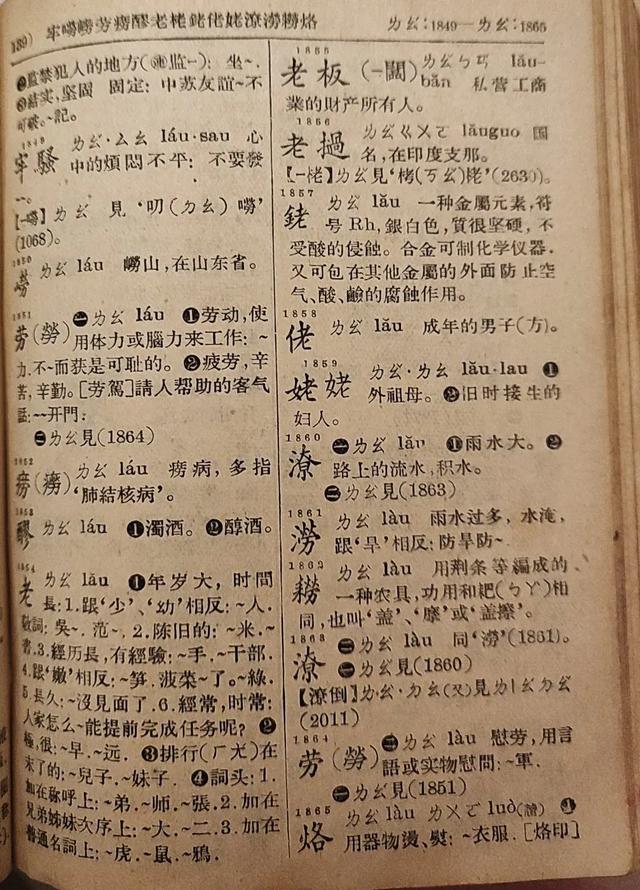 139) 牢嘮嶗劳癆醪老栳銠佬姥潦澇耮烙 ㄌㄠ:1849—ㄌㄠ:1865
❷監禁犯人的地方(㊥監一):坐~.
❸結实,坚固 固定:中苏友誼~不
可破.~記。
1849
牢騷 ㄌㄠ·ㄙㄠ láu·sau 心
中的煩悶不平:不要發
~。
【一嘮】ㄌㄠ 見‘叨(ㄉㄠ)嘮’
(1068)。
1850
嶗 ㄌㄠ láu 嶗山,在山东省。
1851
劳(勞) ㊀ㄌㄠ láu ❶劳动,使
用体力或腦力来工作:~
力.不~而获是可耻的。❷疲劳,辛
苦,辛勤。[劳駕]請人帮助的客气
話:~~开門:
㊁ㄌㄠ見(1864)
1852
痨(癆) ㄌㄠ láu 癆病,多指
‘肺結核病’。
1853
醪 ㄌㄠ láu ❶濁酒。❷醇酒。
1854
老 ㄌㄠ lău ❶年岁大,时間
長:1.跟‘少’、‘幼’相反:~人.
敬詞:吳~.范~.2.陈旧的:~米.~
書.3.經历長,有經驗:~手.~干部.
4.跟‘嫩’相反:~笋.菠菜~了.~綠.
5.長久:~沒見面了.6.經常,时常:
人家怎么~能提前完成任务呢?❷
極,很:~早.~远.❸排行(ㄏㄤ)在
末了的:~兒子.~妹子.❹詞头:1.
加在称呼上:~弟.~师.~張.2.加在
兄弟姊妹次序上:~大.~二.3.加在
普通名詞上:~虎.~鼠.~鴉.
1855
老板(一闆) ㄌㄠㄅㄢ lău-
băn 私营工商
業的財产所有人。
1856
老撾 ㄌㄠㄍㄨㄛ lăuguo 国
名,在印度支那。
【一栳】ㄌㄠ見‘栲(ㄎㄠ)栳’(2630)。
1857
銠 ㄌㄠ lău 一种金屬元素,符
号Rh,銀白色,質很坚硬,不
受酸的侵蝕。合金可制化学仪器.
又可包在其他金屬的外面防止空
气、酸、鹼的腐蝕作用。
1858
佬 ㄌㄠ lău 成年的男子(方)。
1859
姥姥 ㄌㄠ·ㄌㄠ lău·lau ❶
外祖母。❷旧时接生的
妇人。
1860
潦 ㊀ㄌㄠ lău ❶雨水大。❷
路上的流水,积水。
㊁ㄌㄠ見(1863)
1861
澇 ㄌㄠ làu 雨水过多,水淹,
跟‘旱’相反:防旱防~.
1862
耮 ㄌㄠ làu 用荆条等編成的
一种农具,功用和耙(ㄅㄚ)相
同,也叫‘盖’、‘摩’或‘盖擦’。
1863
潦 ㊀ㄌㄠ làu 同‘澇’(1861)。
㊁ㄌㄠ見(1860)
【潦倒】ㄌㄠ·ㄉㄠ(又)見ㄌㄧㄠㄉㄠ
(2011)
1864
劳(勞) ㊁ㄌㄠ làu 慰劳,用言
語或实物慰問:~軍.
㊀ㄌㄠ見(1851)
1865
烙 ㄌㄠ làu ㄌㄨㄛ luò(讀) ❶
用器物燙、熨:~衣服.[烙印]